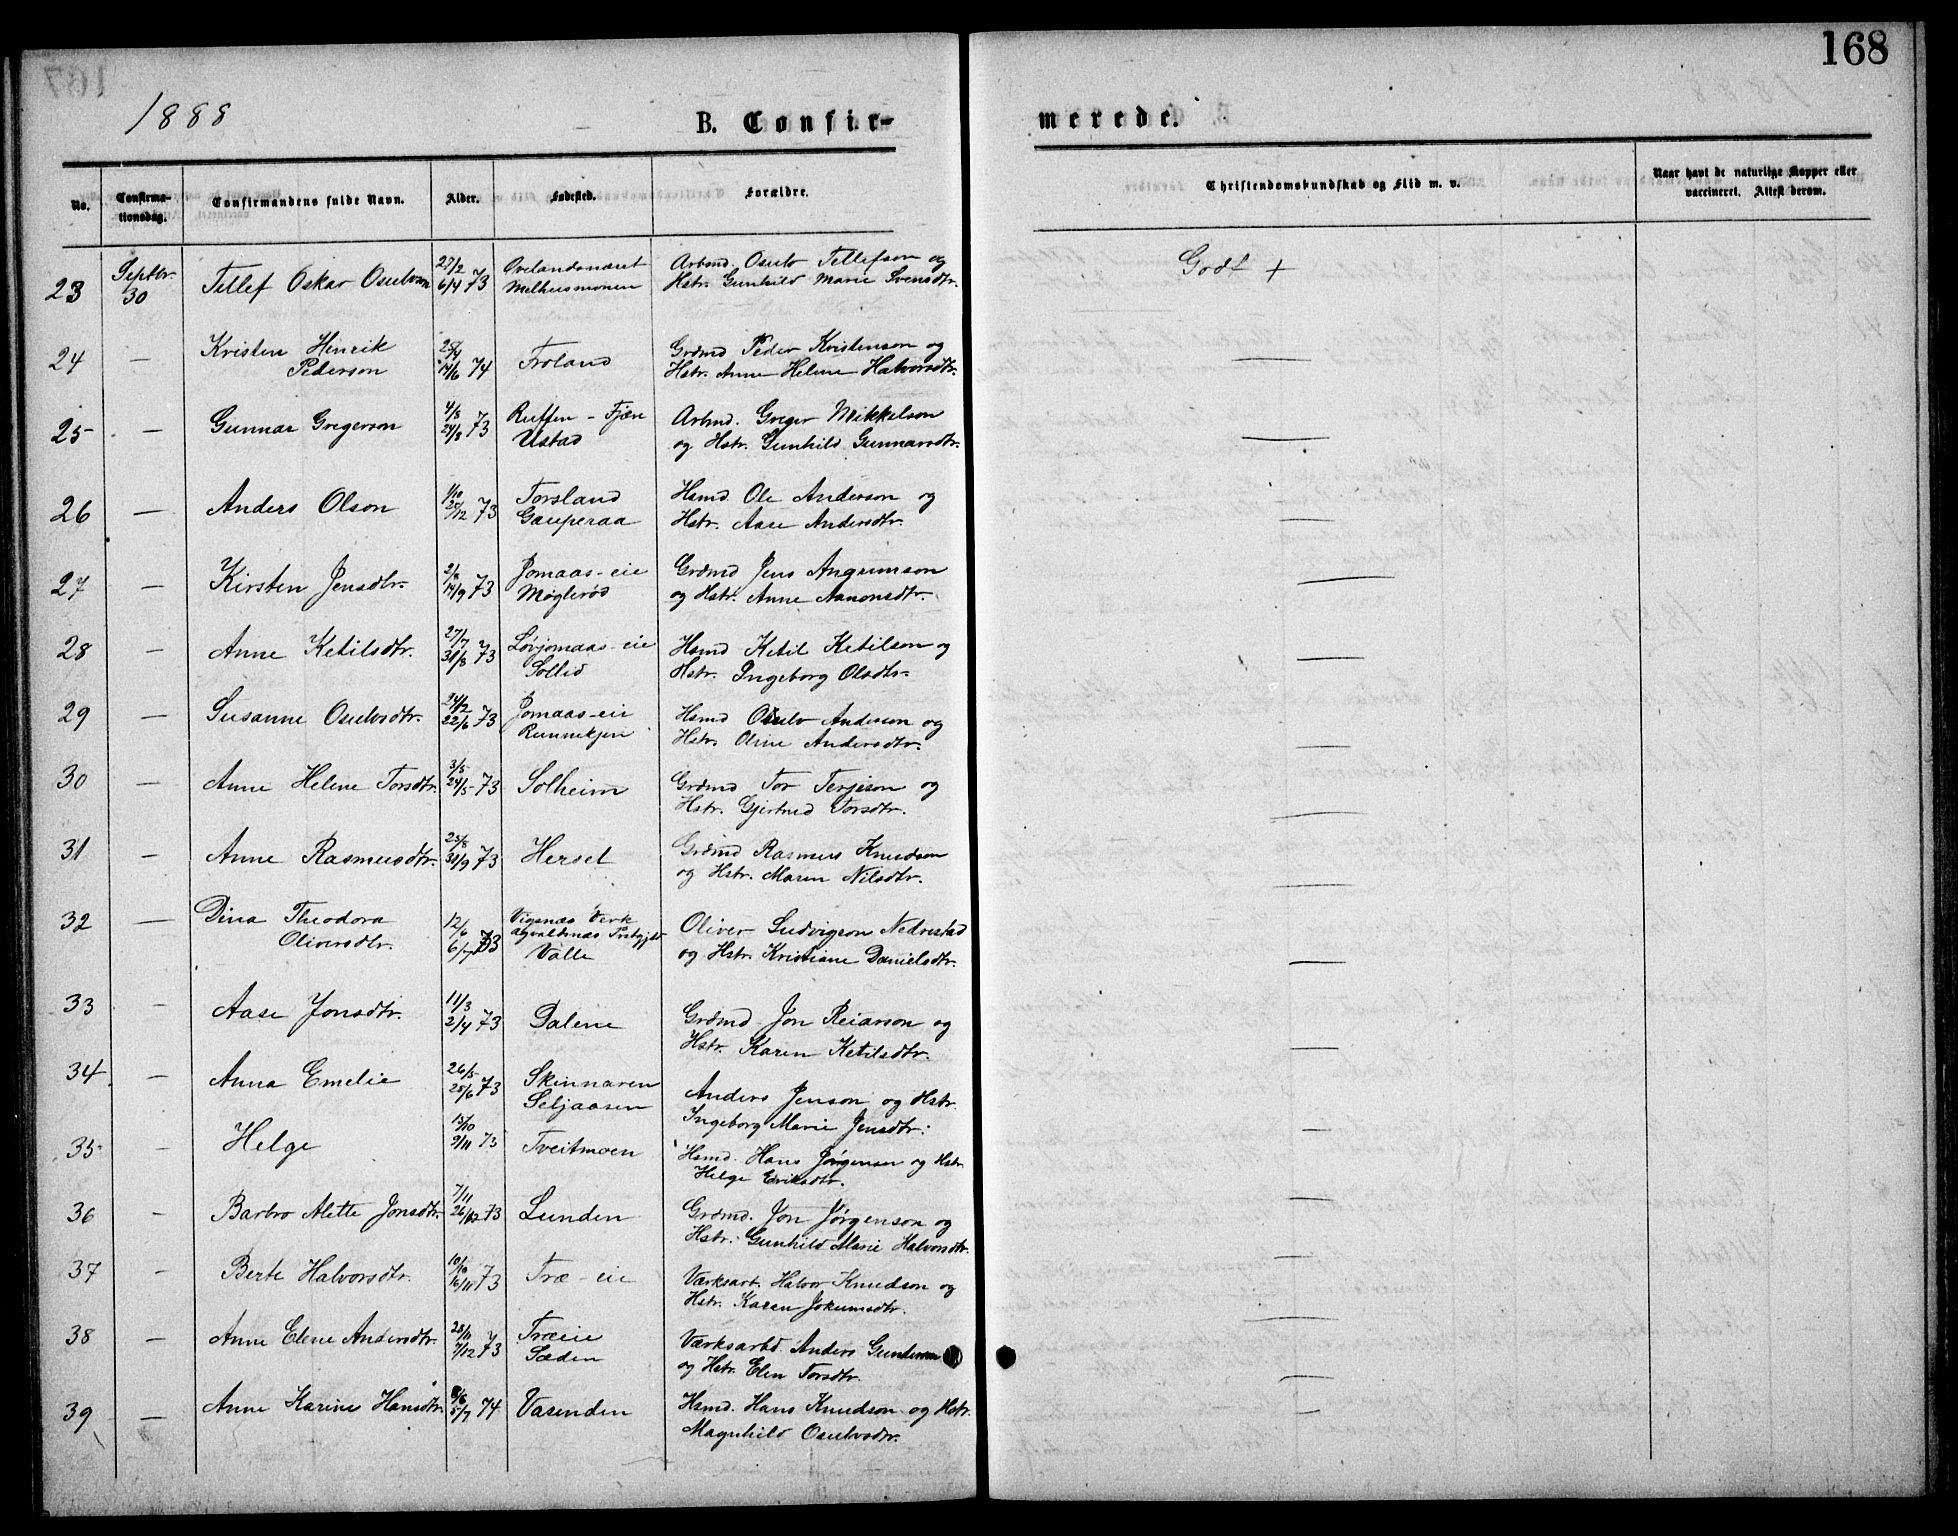 168
1888
B. Confir-
merede.
No.
Confirma-
tionsdag.
Confirmandens fulde Navn.
Alder.
Fødested.
Forældre.
Christendomskundskab og Flid m. v.
Naar havt de naturlige Kopper eller
vaccineret. Attest derom.
23 Septbr. 30 Tellef Oskar Osulvson 27/2 6/4 73 Ovelandsnæset Melhusmonen
Arbmd. Osulv Tellefson og
Hstr. Gunhild Marie Svensdtr.
Godt +
24 — Kristen Henrik
Pederson
25/4 14/6 74 Froland
Grdmd Peder Kristenson og
Hstr. Anne Helene Halvorsdtr. —
25 — Gunnar Gregerson 4/8 24/8 73 Ruffen - Fjære
Ustad
Arbmd. Greger Mikkelson
og Hstr. Gunhild Gunnarsdtr. —
26 — Anders Olson 1/10 26/12 73 Torsland
Gauperaa
Hsmd Ole Anderson og
Hstr. Aase Andersdtr. —
27 — Kirsten Jensdtr. 2/8 14/9 73 Jomaas-eie
Møglerød
Grdmd Jens Angrimson
og Hstr. Anne Aanonsdtr. —
28 — Anne Ketilsdtr. 27/7 31/8 73 Løvjomaas-eie
Sollid
Hsmd Ketil Ketilson og
Hstr. Ingeborg Olsdtr. —
29 — Susanne Osulvsdtr. 24/2 22/6 73 Jomaas-eie
Runnekjen
Hsmd Osulv Anderson og
Hstr. Oline Andersdtr. —
30 — Anne Helene Torsdtr. 3/5 24/5 73 Solheim
Grdmd Tor Terjeson og
Hstr. Gjertrud Torsdtr. —
31 — Anne Rasmusdtr. 25/8 /9 73 Hersel
Grdmd Rasmus Knudson
og Hstr. Maren Nilsdtr. —
32 — Dina Theodora
Oliversdtr.
12/6 6/7 73 Vigsnæs Verk
Agvaldsnæs Prstgjld
Valle
Oliver Ludvigson Nedrestad
og Hstr. Kristiane Danielsdtr. —
33 — Aase Jonsdtr. 11/3 2/4 73 Dalene
Grdmd Jon Reiarson og
Hstr. Karen Ketilsdtr. —
34 — Anna Emelie 26/5 25/6 73 Skinnaren
Seljaasen
Anders Jenson og Hstr.
Ingeborg Marie Jensdtr. —
35 — Helge 15/10 9/11 73 Tveitmoen
Hsmd. Hans Jørgensen og Hstr.
Helge Eriksdtr. —
36 — Barbro Alette Jonsdtr. 7/11 26/12 73 Lunden
Grdmd. Jon Jørgenson og
Hstr. Gunhild Marie Halvorsdtr. —
37 — Berte Halvorsdtr. 10/10 16/11 73 Træ-eie
Værksarb. Halvor Knudson og
Hstr. Karen Jokumsdtr. —
38 — Anne Elene Andersdtr. 28/11 7/12 73 Træeie
Sæden
Værksarbd. Anders Gunderson
og Hstr. Elen Torsdtr. —
39 — Anne Karine Hansdtr. 8/6 5/7 74 Vasenden
Hsmd. Hans Knudson og Hstr.
Magnhild Osulvsdtr. —